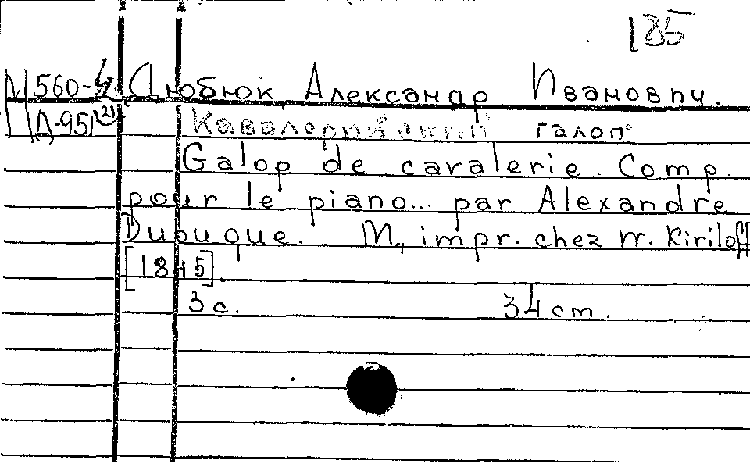 185
М 560-4 Дюбюк, Александр Иванович.
Д-95 Кавалерийский галоп
Galop de cavalerie. Comp.
pour le piano... par Alexandre
Dubuque. M., impr. chez W. Kiriloff
[1845].
3 с. 34 cm.